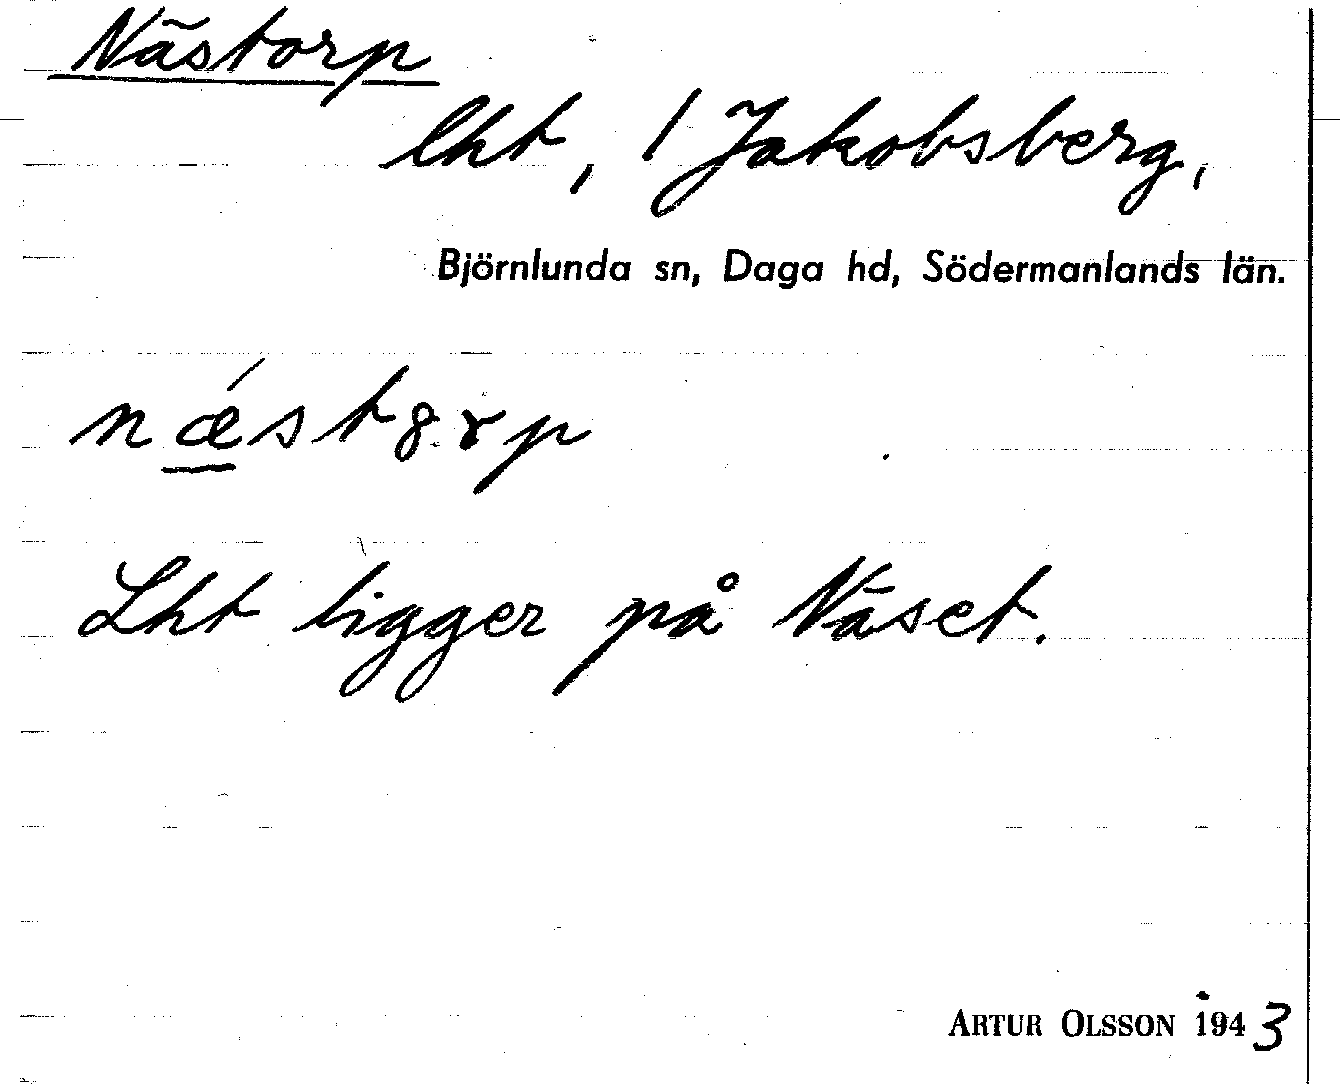 Nästorp
lht, / Jakobsberg,
Björnlunda sn, Daga hd, Södermanlands län.
nǽ̲st8rp
Lht ligger på Näset.
ARTUR OLSSON 1943